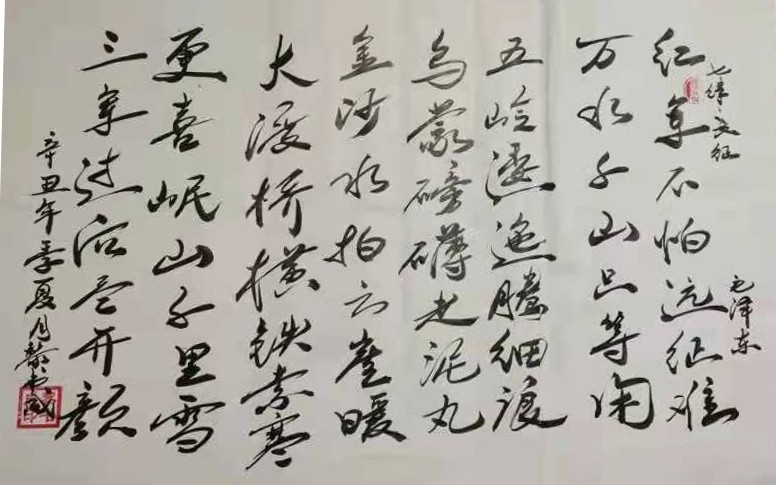 七律·长征
毛泽东
红军不怕远征难
万水千山只等闲
五岭逶迤腾细浪
乌蒙磅礴走泥丸
金沙水拍云崖暖
大渡桥横铁索寒
更喜岷山千里雪
三军过后尽开颜
辛丑年季夏月